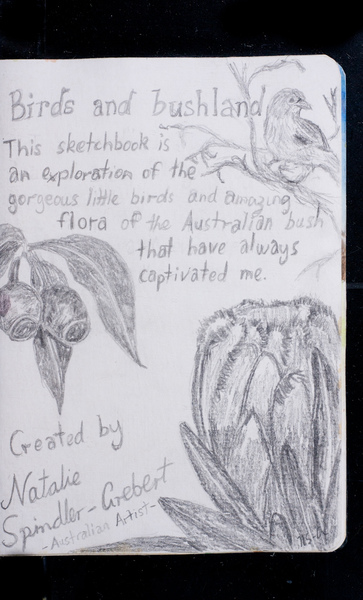 Birds and bushland
This sketchbook is
an exploration of the
gorgeous little birds and amazing
flora of the Australian bush
that have always
captivated me.
Created by
Natalie
Spindler-Grebert
-Australian Artist-